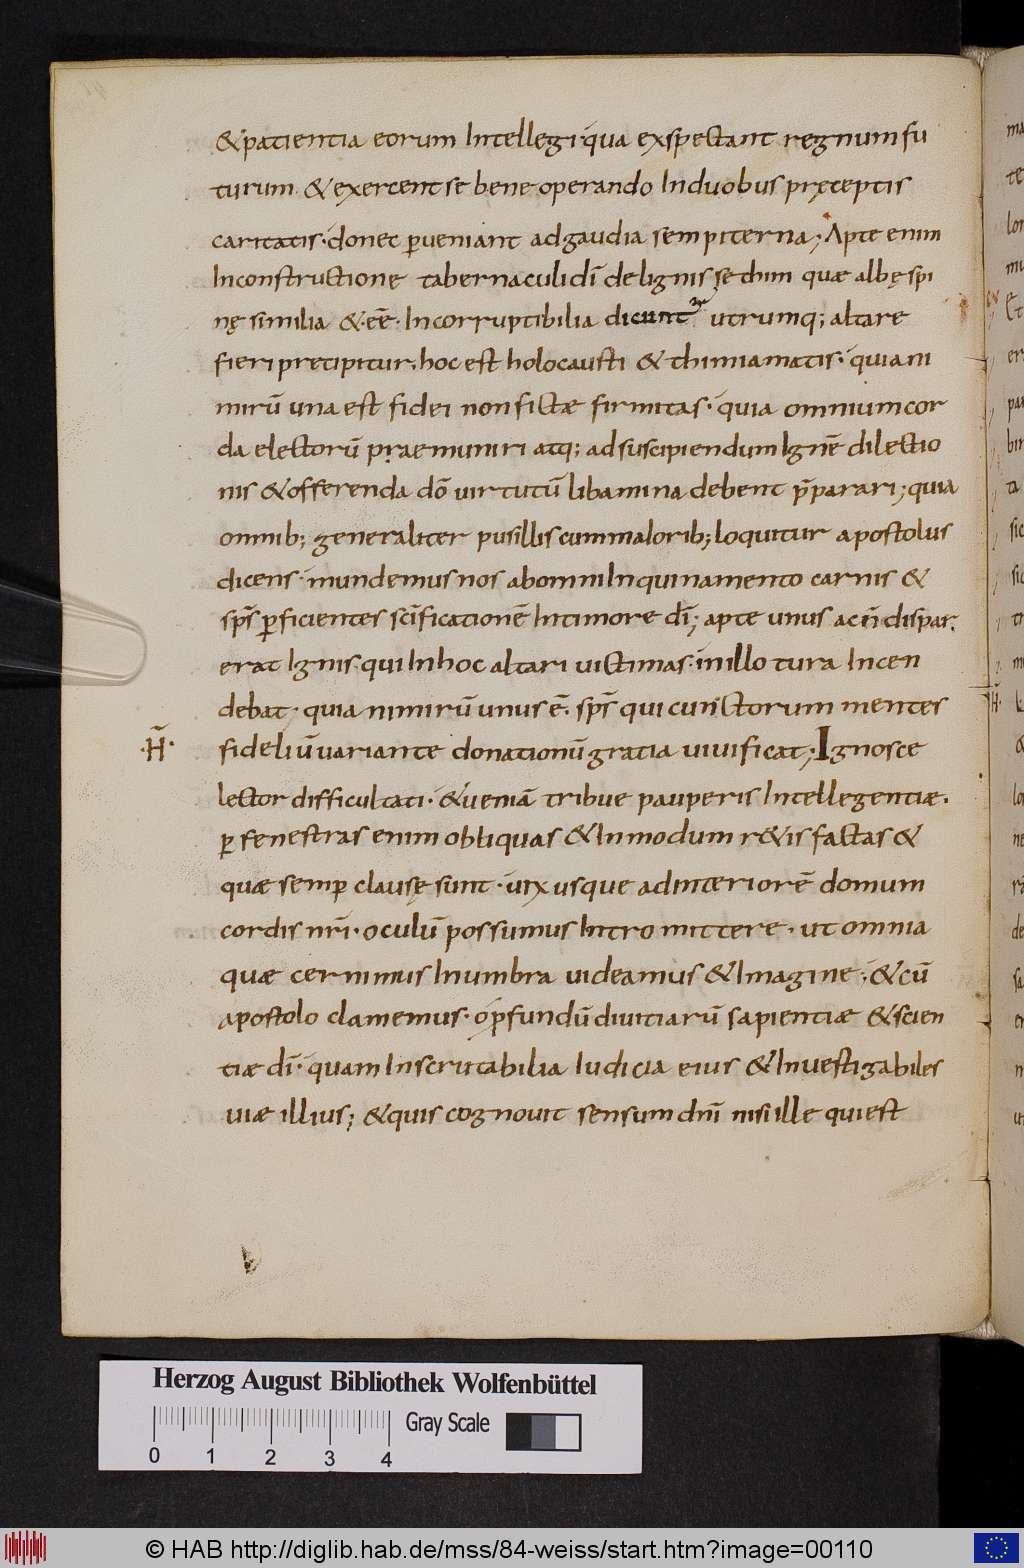 &patientia eorum Intellegi·qua exspectant regnum fu
turum. &exercent se bene operando Induobus pręceptis
caritatis· donec p̱ueniant adgaudia sempiterna; Apte enim
Inconstructione tabernaculi dī delignis sethim quæ albęspi
nę similia &·eē· Incorruptibilia dicunt᷑ utrumq; altare
fieri precipitur, hoc est holocausti & thimiamatis· quia ni
mirū una est fidei non fictæ firmitas· quia omnium cor
da electorū praemuniri atq; ad suscipiendum Ignē dilectio
nis &offerenda dō virtutū libamina debent p̄parari; quia
omnib; generaliter pusillis cum maiorib; loquitur apostolus
dicens· mundemus nos ab omni Inquinamento carnis &
sp̄s p̱ficientes sc̄ificationē In timore dī; apte unus ac n̄ dispar
erat Ignis qui In hoc altari victimas· in illo tura Incen
debat· quia nimirū unus ē. sp̄s qui cunctorum mentes
·H̄· fideliū variante donationū gratia vivificat; Ignosce
lector difficultati· &ueniā tribue pauperis Intellegentiæ.
p̱ fenestras enim obliquas & In modum r&is factas &
quæ semp̱ clausę sunt· uix usque ad interiorē domum
cordis nr̄i· oculū possumus Intro mittere· ut omnia
quæ cernimus In umbra videamus & Imagine· & cū
apostolo clamemus· o p̱fundū divitiarū sapientiæ & scien
tiæ dī· quam Inscrutabilia Iudicia eius & Investigabiles
viæ illius; & quis cognovit sensum dn̄i nisi ille qui est
Herzog August Bibliothek Wolfenbüttel
Gray Scale
0 1 2 3 4
© HAB http://diglib.hab.de/mss/84-weiss/start.htm?image=00110